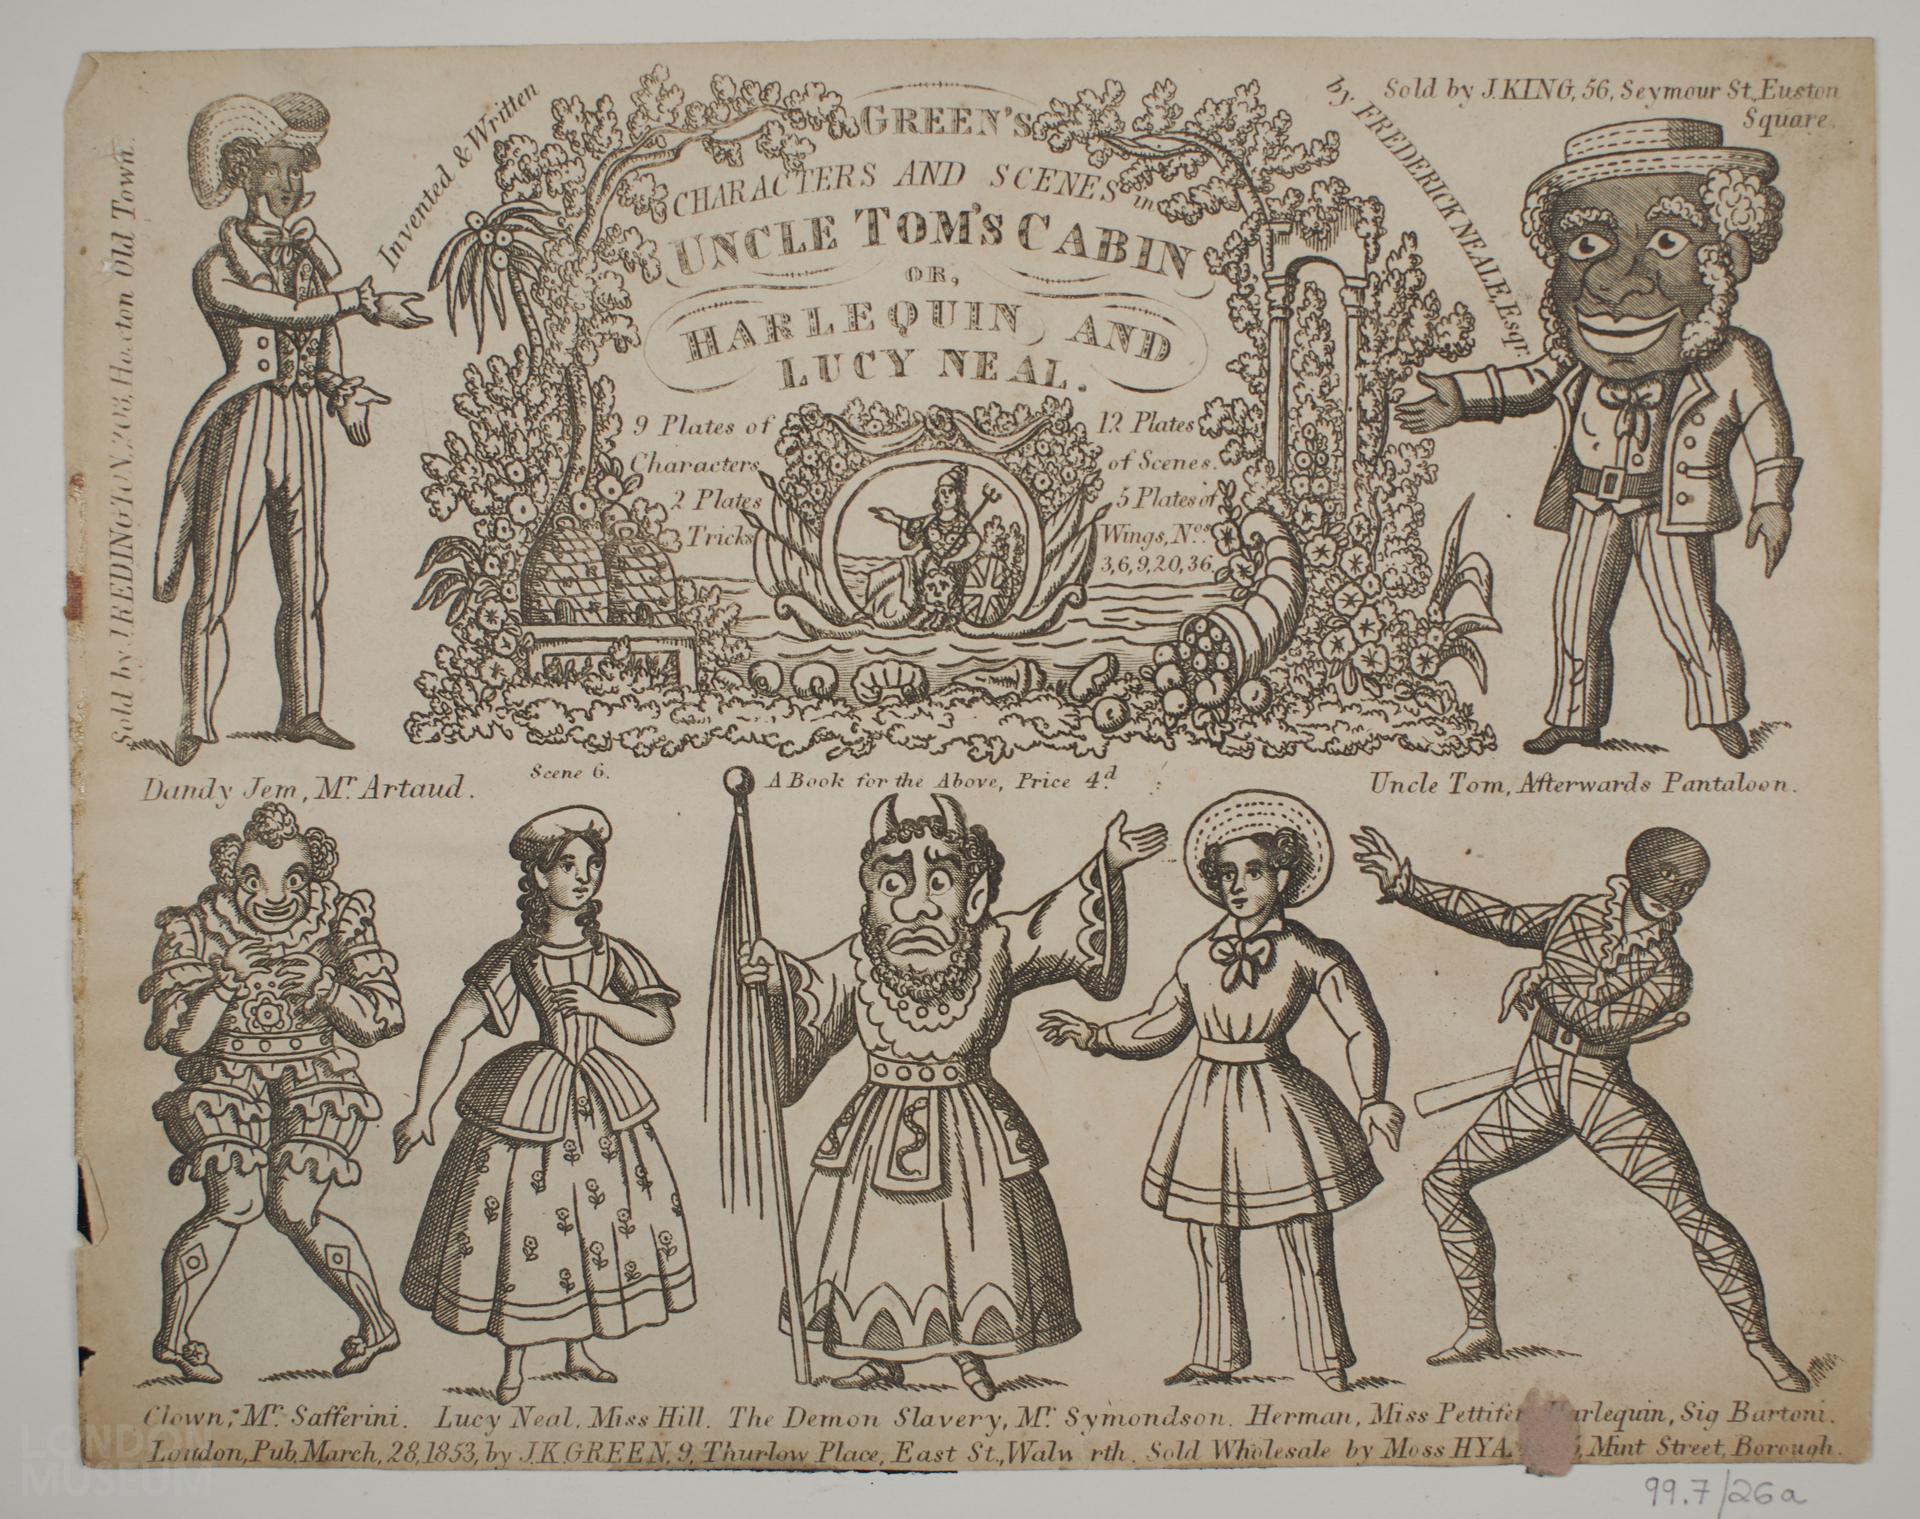 Sold by J. KING, 56, Seymour St, Euston
Square.
Sold by J. REDINGTON, 208, Ho ton Old Town.
Invented & Written
by FREDERICK NEALE, Esqr.
GREEN'S
CHARACTERS AND SCENES in
UNCLE TOM'S CABIN
OR,
HARLEQUIN AND
LUCY NEAL.
9 Plates of
Characters
2 Plates
Tricks
12 Plates
of Scenes.
5 Plates of
Wings, Nos.
3,6,9,20,36.
Dandy Jem, Mr. Artaud.
Scene 6.
A Book for the Above, Price 4d.
Uncle Tom, Afterwards Pantaloon.
Clown, Mr. Safferini. Lucy Neal, Miss Hill. The Demon Slavery, Mr. Symondson. Herman, Miss Pettifer Harlequin, Sig Bartoni.
London, Pub. March, 28, 1853, by J.K. GREEN, 9, Thurlow Place, East St., Walw rth. Sold Wholesale by Moss HYA Mint Street, Borough.
LONDON
MUSEUM
99.7/26a